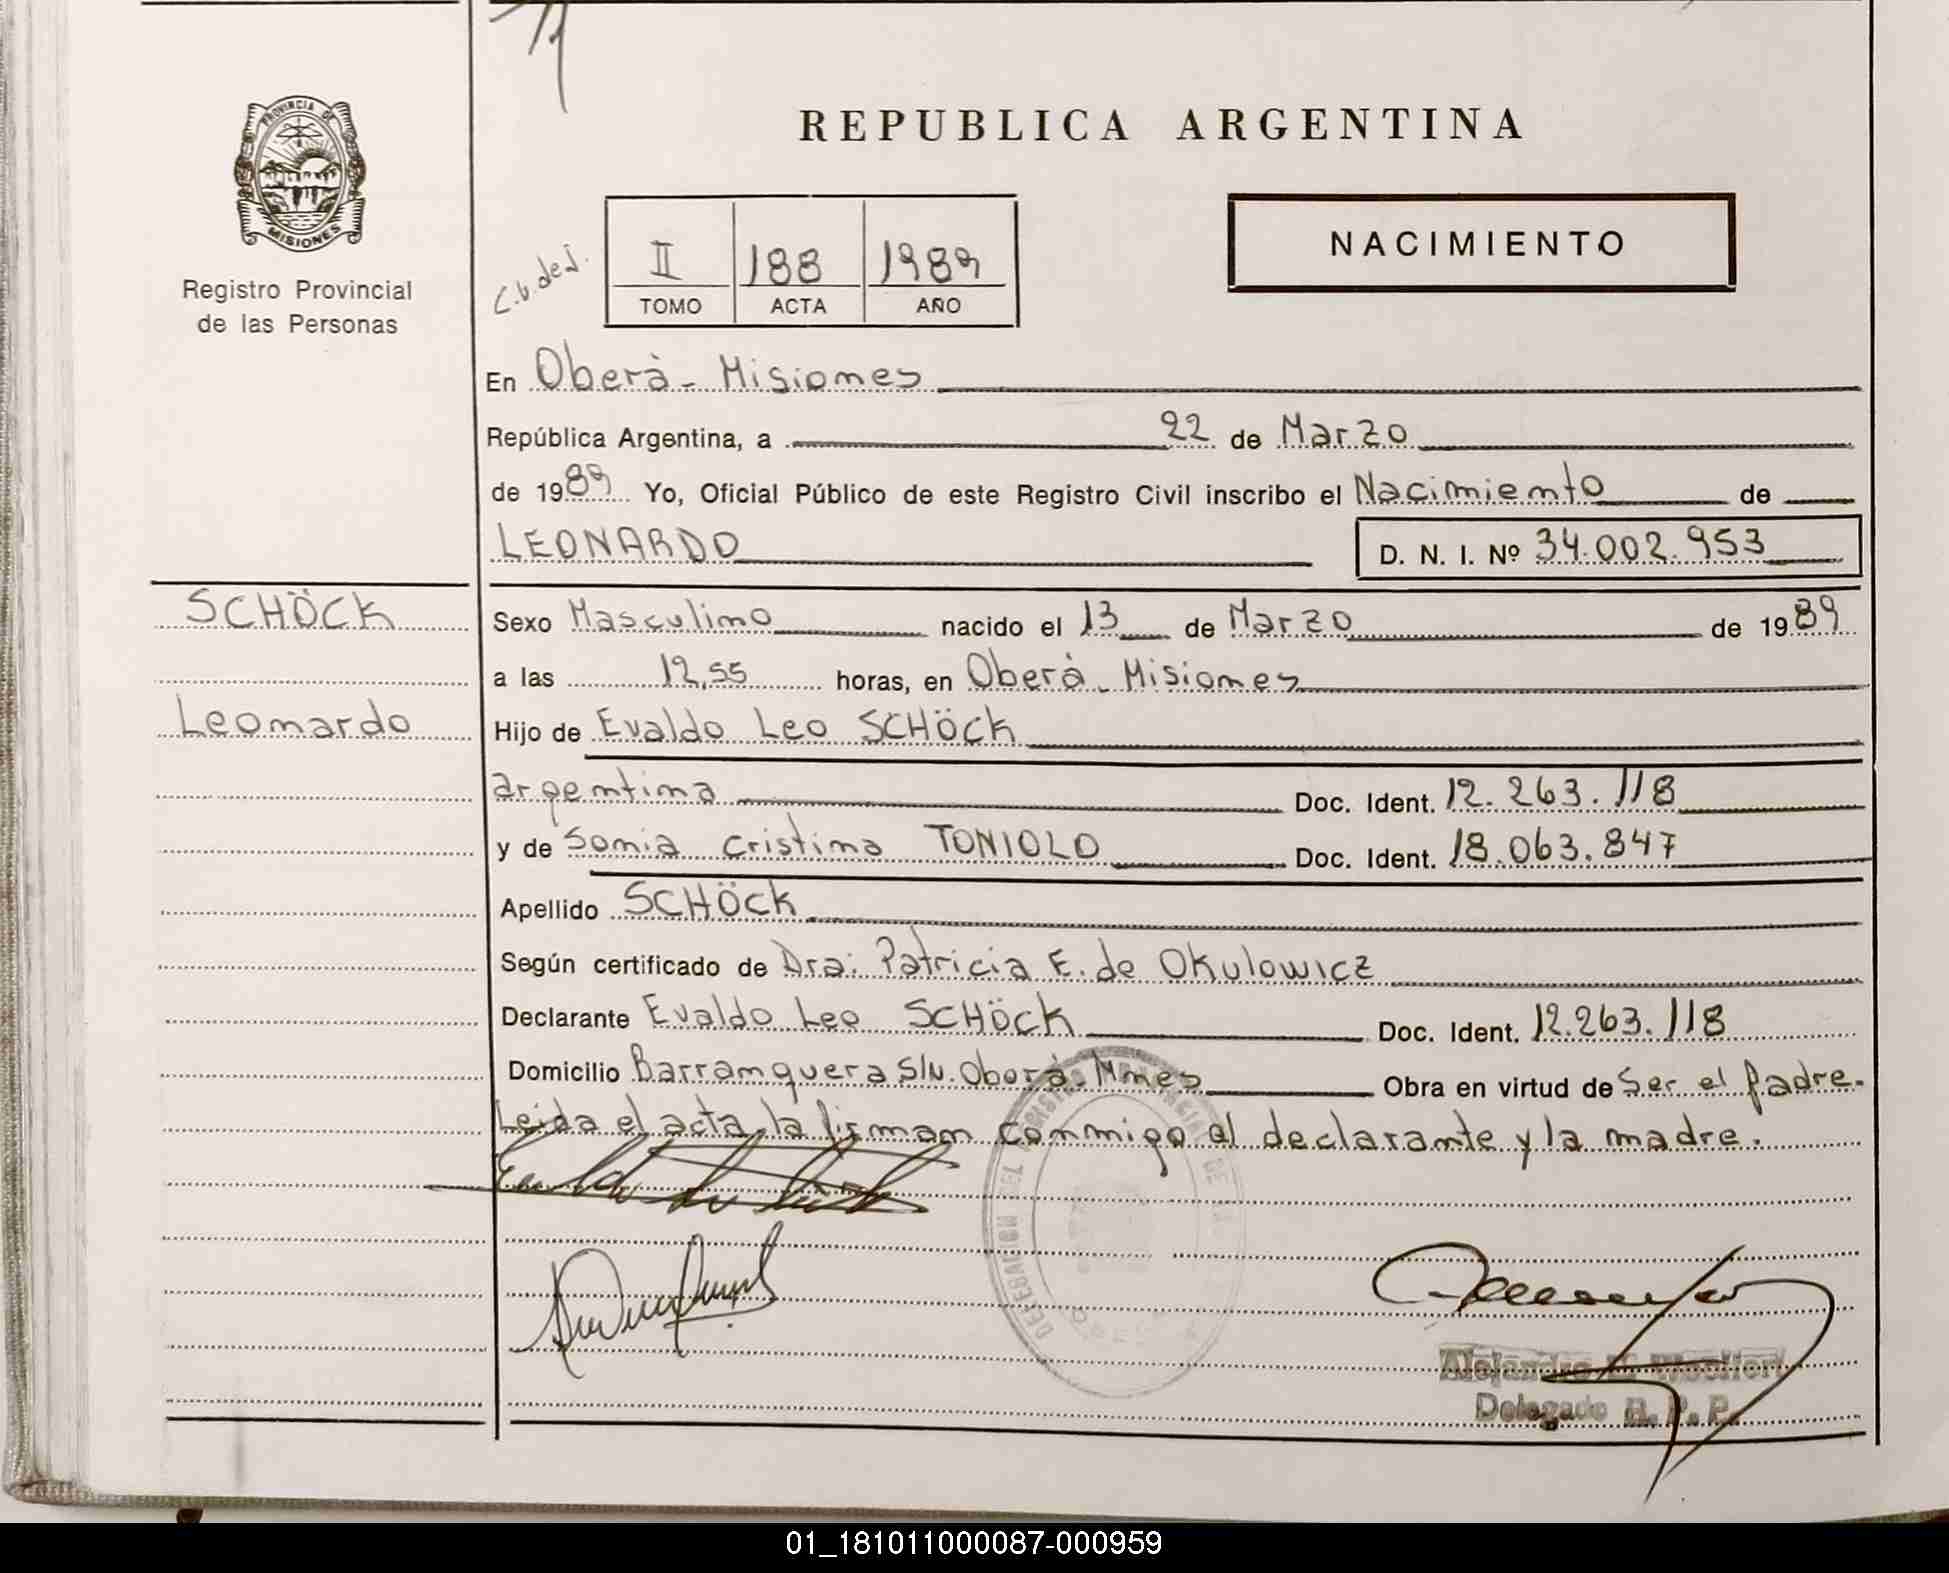 REPUBLICA ARGENTINA
PROVINCIA DE
MISIONES
Registro Provincial
de las Personas
C.V. de J.
II 188 1989
TOMO ACTA AÑO
NACIMIENTO
En Oberà - Misiones
República Argentina, a 22 de Marzo
de 1989 Yo, Oficial Público de este Registro Civil inscribo el Nacimiento de
LEONARDO D. N. I. Nº 34.002.953
SCHÖCK
Sexo Masculino nacido el 13 de Marzo de 1989
a las 12,55 horas, en Oberà - Misiones
Leonardo
Hijo de Evaldo Leo SCHÖCK
argentina Doc. Ident. 12.263.118
y de Sonia Cristina TONIOLO Doc. Ident. 18.063.847
Apellido SCHÖCK
Según certificado de Dra: Patricia E. de Okulowicz
Declarante Evaldo Leo SCHÖCK Doc. Ident. 12.263.118
Domicilio Barranquera S/N. Oberà - Mnes Obra en virtud de Ser el Padre.
Leida el acta, la firman conmigo el declarante y la madre.
DELEGACION DEL REGISTRO PROVINCIAL DE
Alejandro
Delegado R. P. P.
01_181011000087-000959